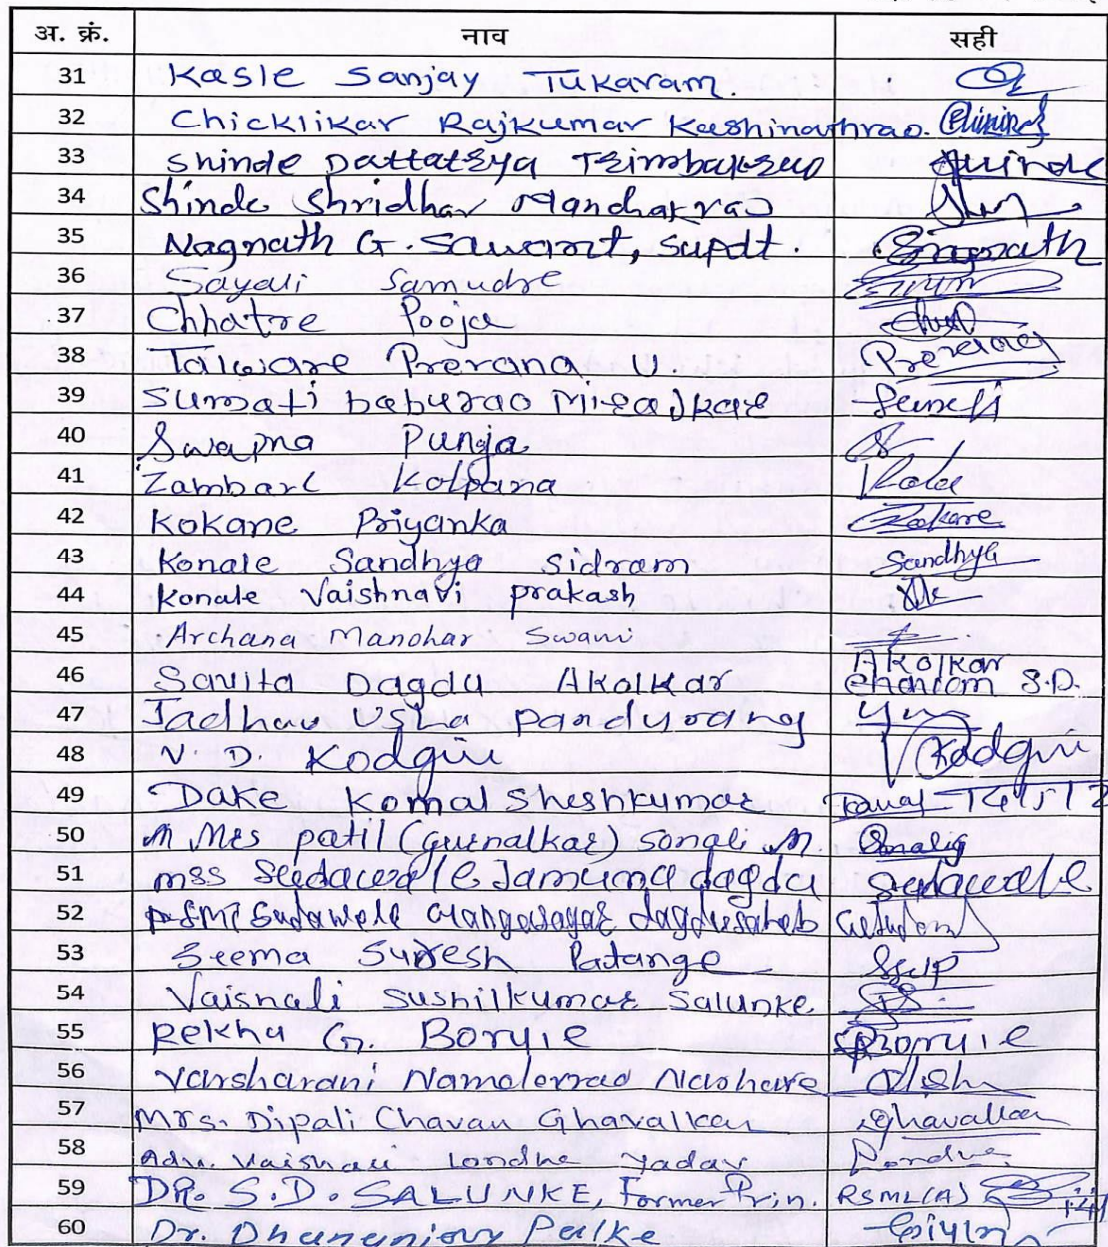 अ. क्रं. नाव सही
31 Kasle Sanjay Tukaram.
32 Chicklikar Rajkumar Kashinathrao.
33 Shinde Dattatrya Trimbakrao Shinde
34 Shinde Shridhar Manohar rao
35 Nagnath G. Sawant, Supdt.
36 Sayali Samudre
37 Chhatre Pooja
38 Talware Prerana. U. Prerana
39 Sumati baburao Mirajkar Sumati
40 Swapna Punja
41 Zambare Kalpana Kala
42 Kokane Priyanka Kokane
43 Konale Sandhya Sidram Sandhya
44 Konale Vaishnavi prakash
45 Archana Manohar Swami
46 Savita Dagdu Akolkar Akolkar S.D.
47 Jadhav Usha pandurang
48 V. D. Kodgiri Kodgiri
49 Dake Komal Sheshkumar
50 Mrs patil (Gurnalkar) Sonali M. Sonalig
51 mss Sudawale Jamuna dagdu Sudawale
52 Smt Sudawale Gangasagar dagdusaheb
53 Seema Suresh Patange SSP
54 Vaishali Sushilkumar Salunke.
55 Rekha G. Boryie Boryie
56 Varsharani Namdevrao
57 Mrs. Dipali Chavan Ghavalkar Ghavalkar
58 Adv. Vaishali Londhe Yadav Londhe
59 DR. S. D. SALUNKE, Former Prin. RSML(A)
60 Dr. Dhananjay Palke